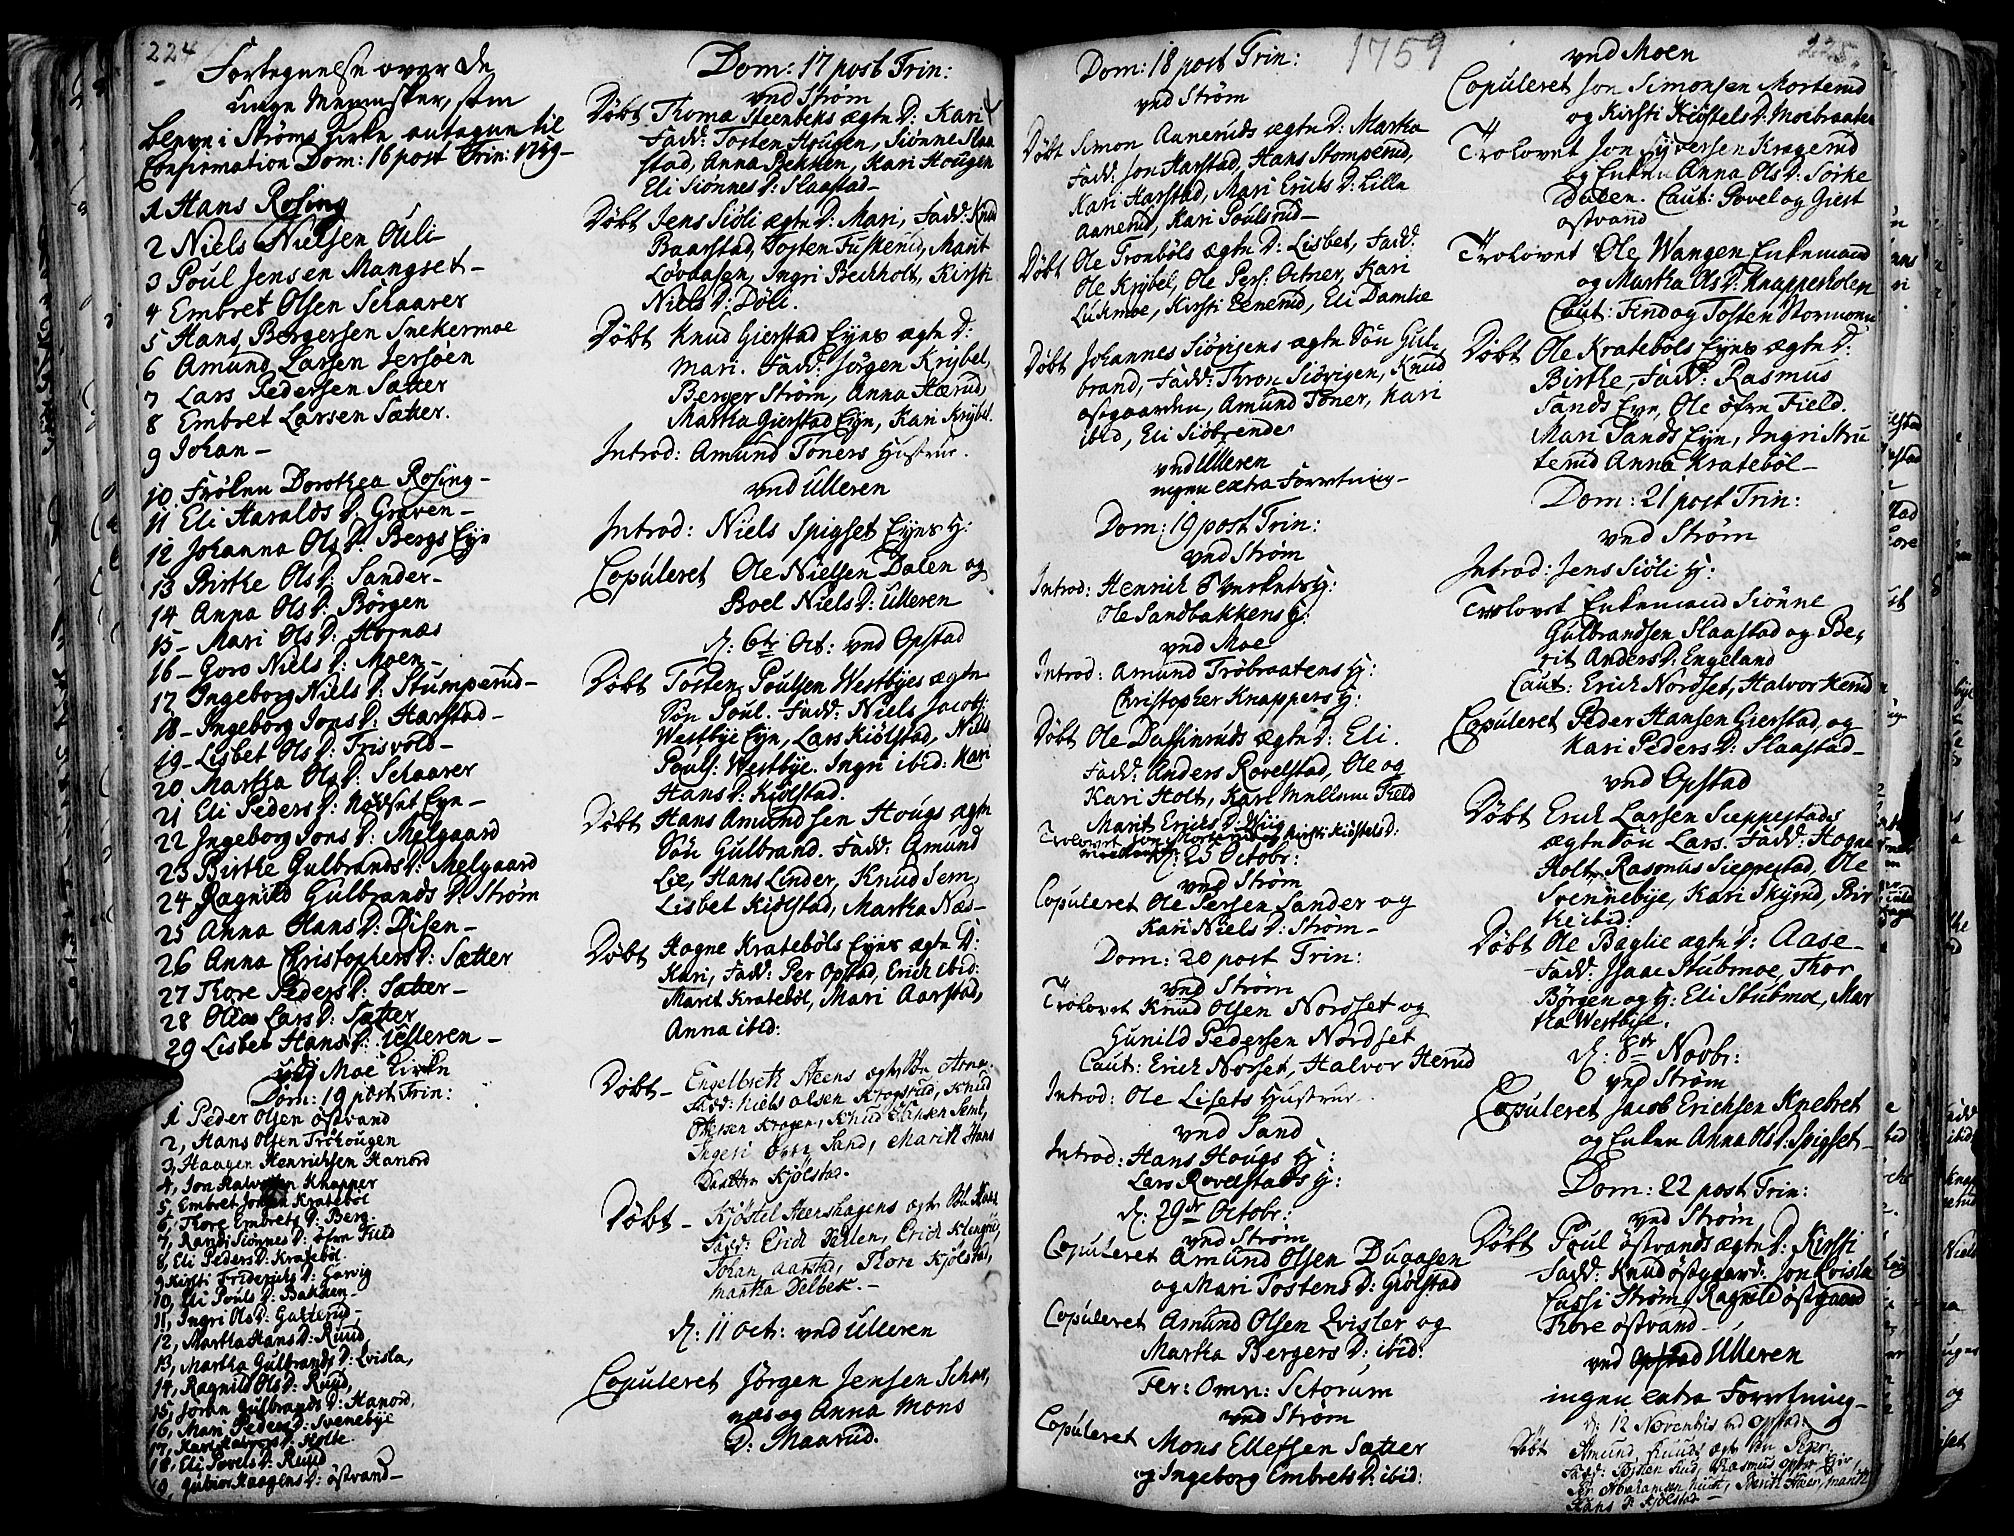 224
Fortegnelse over de
unge Mennisker, som
bleve i Strøms Kirke antagne til
Confirmation Dom: 16 post Trin: 1759-
1 Hans Rosing
2 Niels Nielsen Ouli
3 Poul Jensen Mangset-
4 Embret Olsen Schaarer
5 Hans Bergersen Snekermoe
6 Amund Larsen Jersøen
7 Lars Pedersen Sætter
8 Embret Larsen Sætter.
9 Johan-
10 Frølen Dorothea Rosing-
11 Eli Haralds D: Greven-
12 Johanna Ols D: Bergs Eye
13 Birthe Ols D: Sander-
14 Anna Ols D: Børgen
15- Mari Ols D: Hornæs
16- Goro Niels D: Moen-
17 Ingeborg Niels D: Stumperud-
18- Ingeborg Jons D: Harstad-
19- Lisbet Ols D: Frisvold-
20 Martha Ols D: Schaarer
21 Eli Peders D: Nordset Eye-
22 Ingeborg Jons D: Melgaard
23 Birthe Gulbrands D: Melgaard
24 Ragnild Gulbrands D: Strøm
25 Anna Hans D: Disen-
26 Anna Christophers D: Sætter
27 Thore Peders D: Sætter-
28 Olea Lars D: Sætter
29 Lisbet Hans D: Ulleren-
ved Moe Kirke
Dom: 19 post Trin:
1 Peder Olsen Østvand
2, Hans Olsen Trøhougen
3, Haagen Henrichsen Hanord
4, Jon Halvorsen Knapper
5, Embret Johans Kratebøl
6, Thore Embrets D: Berg-
7, Randi Siønnes D: Øfre Field
8, Eli Peders D: Kratebøl.
9 Kirsti Friderichs D: Garvig
10, Eli Pouls D: Bakken
11, Ingri Ols D: Galterud-
12, Martha Hans D: Ruud,
13, Martha Gulbrands D: Qvisla,
14, Ragnild Ols D: Ruud,
15, Joran Gulbrands D: Hanord,
16, Mari Peders D: Svenebye
17, Kari Halvors D: Holte.
18, Eli Povels D: Ruud
19, Gubior Haagens D: Østvand-
Dom: 17 post Trin:
ved Strøm
Døbt Thoma Steenbeks ægte D: Kari
Fadd: Tosten Hougen, Siønne Slaa
stad, Anna Bekken, Kari Hougen
Eli Siønnes D: Slaastad-
Døbt Jens Siøli ægte D: Mari, Fadd: Knud
Baarstad, Tosten Fuskerud, Marit
Lovaasen, Ingri Bechholt, Kirsti
Niels D: Døli.
Døbt Knud Gierstad Eyes ægte D:
Mari. Fadd: Jørgen Krybel,
Berger Strøm, Anna Hærud,
Martha Gierstad Eye, Kari Krybel.
Introd: Amund Toners Hustrue.
ved Ulleren
Introd: Niels Spigset Eyes H:
Copuleret Ole Nielsen Dalen og
Boel Niels D: Ulleren
d. 6te Oct: ved Opstad
Døbt Tosten Poulsen Westbyes ægte
Søn Poul. Fadd: Niels Jacobs:
Westbye Eye, Lars Kiølstad, Niels
Pouls: Westbye. Ingri ibid: Kari
Hans D: Kiølstad.
Døbt Hans Amundsen Hougs ægte
Søn Gulbrand. Fadd: Amund
Lie, Hans Linder, Knud Sem,
Lisbet Kiølstad, Martha Næs-
Døbt Hogne Kratebøls Eyes ægte D:
Kari, Fadd: Per Opstad, Erich ibid:
Marit Kratebøl, Mari Aarstad,
Anna ibid:
Døbt- Engelbreth Steens ægte Søn Arne
Fadd: Niels Olsen Krogstrud, Knud
Ottersen Krogen, Knud Hansen Sem,
Ingeri Sand, Marith Hans
Daatter Kjølstad.
Døbt- Kjøstel Steershagens ægte Søn Hans
Fadd: Erich Dahlen, Erich Klengrud,
Johan Aarstad, Thore Kjølstad,
Martha Delbek.-
d. 11 Oct: ved Ulleren
Copuleret Jørgen Jensen Schar,
næs og Anna Mons
D: Maarud.
1759
Dom: 18 post Trin:
ved Strøm
Døbt Simon Aaneruds ægte D: Martha
Fadd: Jon Harstad, Hans Stomperud,
Kari Harstad, Mari Erichs D: Lille
Aanerud, Kari Poulsrud-
Døbt Ole Tronbøls ægte D: Lisbet, Fadd:
Ole Krybel, Ole Pers: Octner, Kari
Lukmoe, Kirsti Penerud, Eli Damlie
Døbt Johannes Siøvigens ægte Søn Gul,
brand, Fadd: Thron Siøvigen, Knud
Opgaarden, Amund Toner, Kari
ibid, Eli Siøbrende
ved Ulleren
ingen extra Forretning-
Dom: 19 post Trin:
ved Strøm
Introd: Henrich Verknes H:
Ole Sandbakkens H:
ved Moe
Introd: Amund Trøbraatens H:
Christopher Knappers H:
Døbt Ole Dussinruds ægte D: Eli.
Fadd: Anders Rovelstad, Ole og
Kari Holt, Kari Mellem Field
Marit Erichs D: Wiig
Trolovet Jon Morterud og Kirsti Kiøstels D:
Moebraaten
d: 25 Octobr:
ved Strøm
Copuleret Ole Persen Sander og
Kari Niels D: Strøm-
Dom: 20 post Trin:
ved Strøm
Trolovet Knud Olsen Nordset og
Gunild Pedersen Nordset
Caut: Erich Norset, Halvor Herud
Introd: Ole Lisets Hustrue.
ved Sand
Introd: Hans Hougs H:
Lars Rovelstads H:
d: 29de Octobr:
ved Strøm
Copuleret Amund Olsen Duaasen
og Mari Tostens D: Giølstad
Copuleret Amund Olsen Qvisler og
Martha Bergers D: ibid:
Fer: Omn: Sctorum
ved Strøm
Copuleret Mons Ellefsen Sætter
og Ingeborg Embrets D: ibid:
225.
ved Moen
Copuleret Jon Simonsen Morterud
og Kirsti Kiøstels D: Moebraaten
Trolovet Jon Syversen Kragerud
og Enken Anna Ols D: Sørke
Dalen. Caut: Povel og Giest
Østvand
Trolovet Ole Wangen Enkemand
og Martha Ols D: Knapperholen
Caut: Find og Tosten Normoen
Døbt Ole Kratebøls Eyes ægte D:
Birthe, Fadd: Rasmus
Sands Eye, Ole Øfre Field.
Mari Sands Eye, Ingri Stru
terud Anna Kratebøl-
Dom: 21 post Trin:
ved Strøm
Introd: Jens Siøli H:
Trolovet Enkemand Siønne
Gulbrandsen Slaastad og Be,
rit Anders D: Engeland
Caut: Erich Nordset, Halvor Herud
Copuleret Peder Hansen Gierstad, og
Kari Peders D: Slaastad-
ved Opstad
Døbt Erich Larsen Sieppestads
ægte Søn Lars. Fadd: Hogne
Holt, Rasmus Sieppestad, Ole
Svennebye, Kari Skyrud, Bir
the ibid:
Døbt Ole Baglie ægte D: Aase-
Fadd: Isaac Stubmoe, Thor
Børgen og H: Eli Stubmoe, Mar
tha Westbye.
d: 8de Novbr:
ved Strøm
Copuleret Jacob Erichsen Knebret
og Enken Anna Ols D: Spigset-
Dom: 22 post Trin:
ved Strøm
Døbt Poul Østvands ægte D: Kirsti
Fadd: Knud Østgaard: Jon Qvisla
Cassi Strøm, Ragnild Østgaard
Thore Østvand-
ved Ulleren
ingen extra Forretning-
d: 12 Novembris ved Opstad
Døbt Amund Ruuds ægte Søn Peder,
Fadd: Tosten Rud, Rasmus
Per Abrahamsen, Berith Moen, Marith
Hans D: Kjølstad-